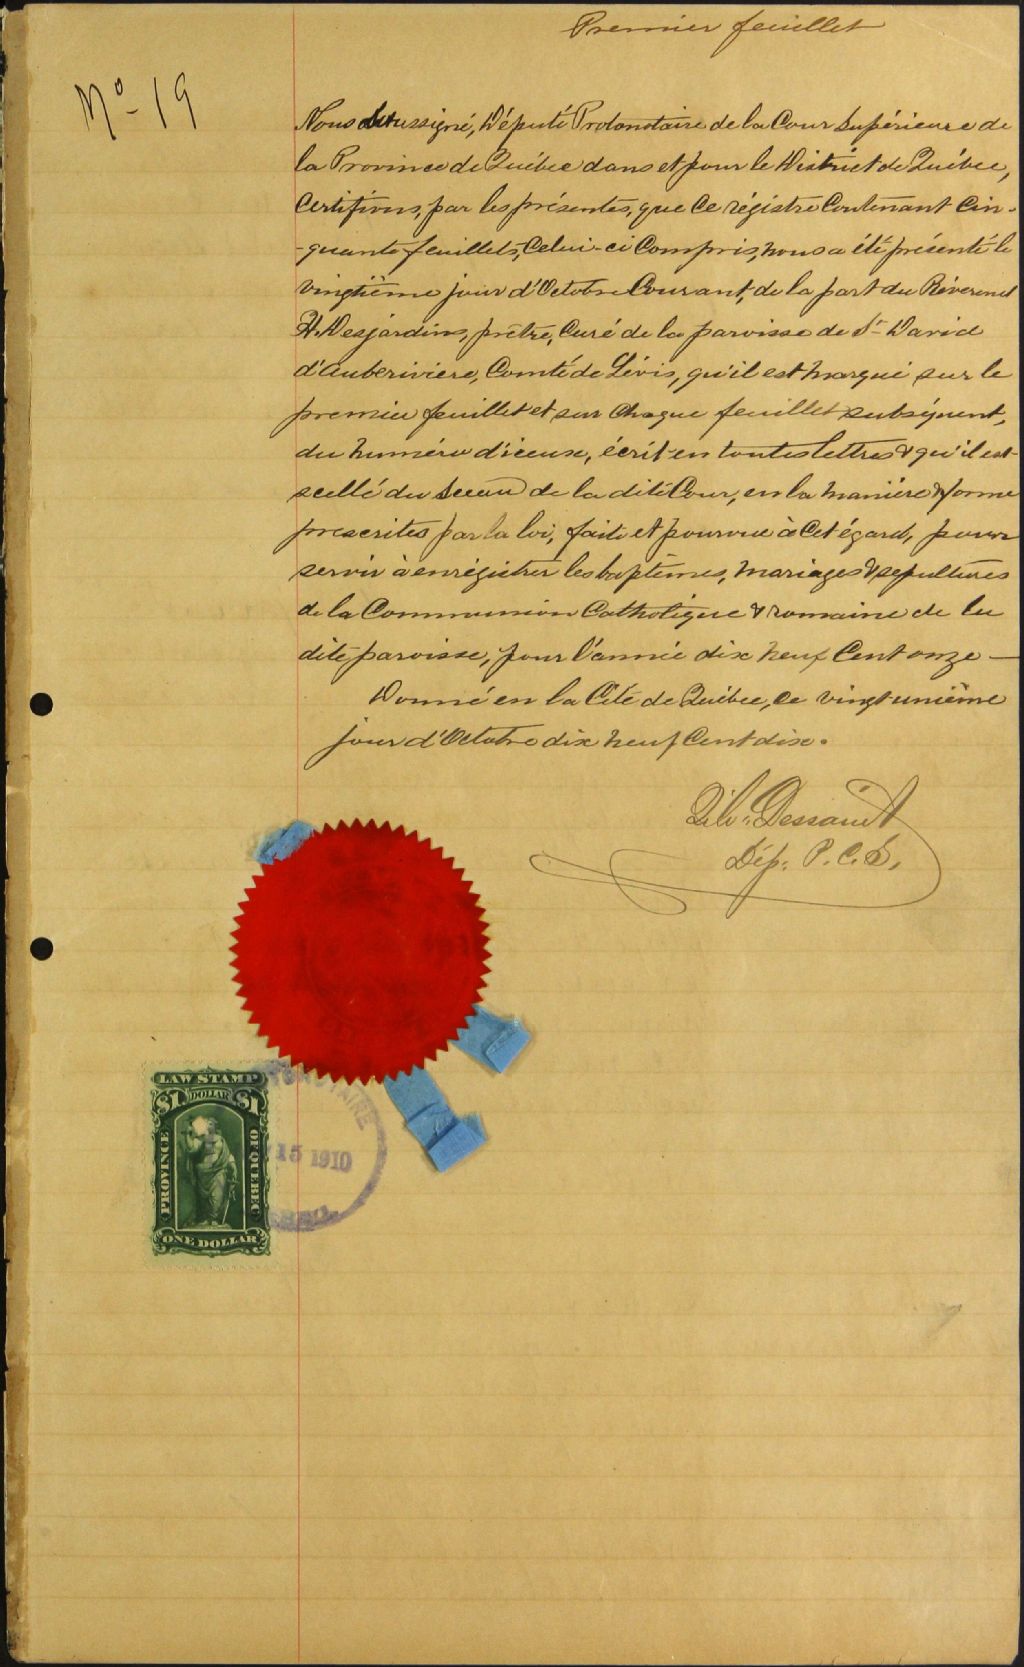 Premier feuillet
No- 19
Nous Soussigné, Député Protonotaire de la Cour Supérieure de
la Province de Québec dans et pour le District de Québec,
Certifions, par les présentes, que Ce régistre Contenant Cin-
-quante feuillets, Celui-ci Compris, nous a été présenté le
vingtième jour d'Octobre Courant, de la part du Révérend
H. Desjardins, prêtre, Curé de la paroisse de St David
d'auberiviere, Comté de Lévis, qu'il est marqué sur le
premier feuillet et sur Chaque feuillet subséquent,
du numéro d'iceux, écrit en toutes lettres & qu'il est
scellé du Sceau de la dite Cour, en la manière & forme
prescrites par la loi, faite et pourvue à Cet égard, pour
servir à enrégistrer les baptêmes, mariages & sepultures
de la Communion Catholique & romaine de la
dite paroisse, pour l'année dix neuf Cent onze —
Donné en la Cité de Québec, ce vingt unième
jour d'Octobre dix neuf Cent dix.
Dessault
Dép. P. C. S.
LAW STAMP
$1 DOLLAR $1
PROVINCE
OF QUEBEC
ONE DOLLAR
15 1910